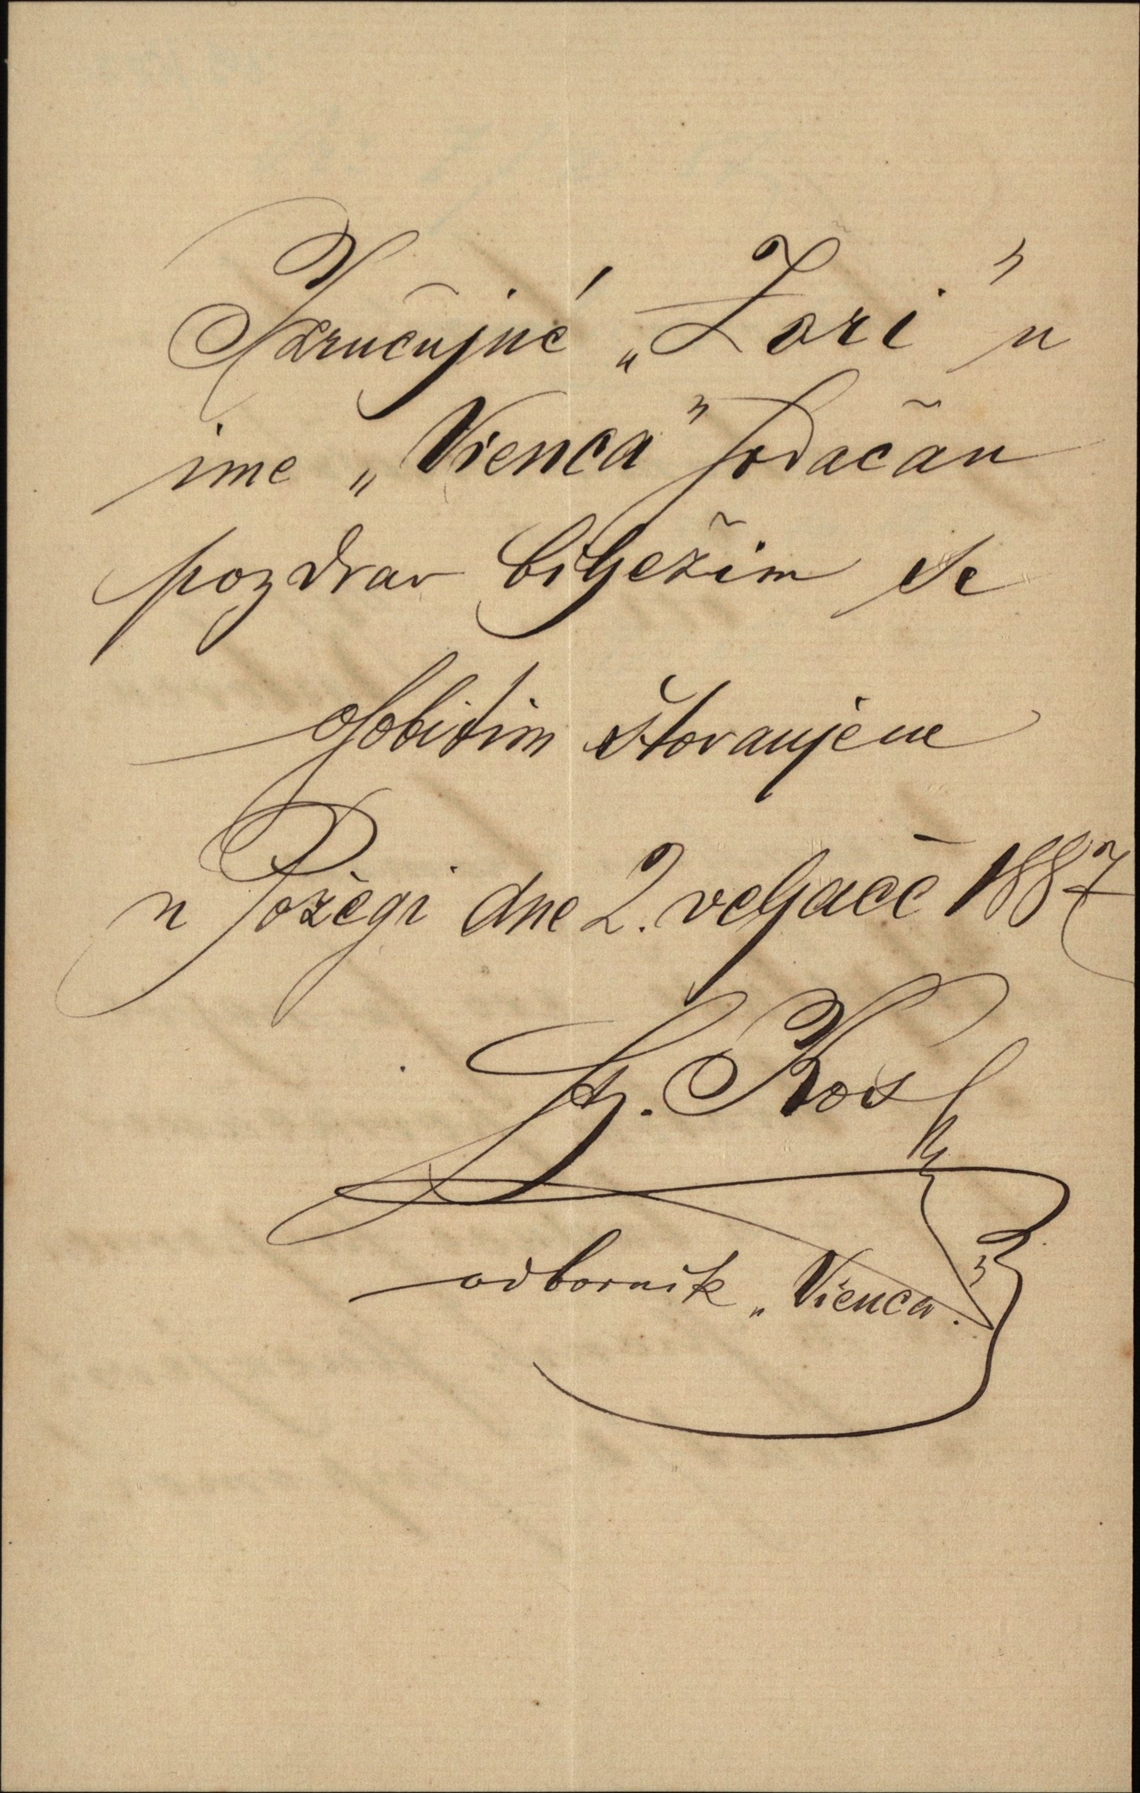 Izručujuć „Zori“ u
ime „Vienca“ srdačan
pozdrav bilježim se
osobitim štovanjem
u Požegi dne 2. veljače 1887
Kos
odbornik „Vienca“.